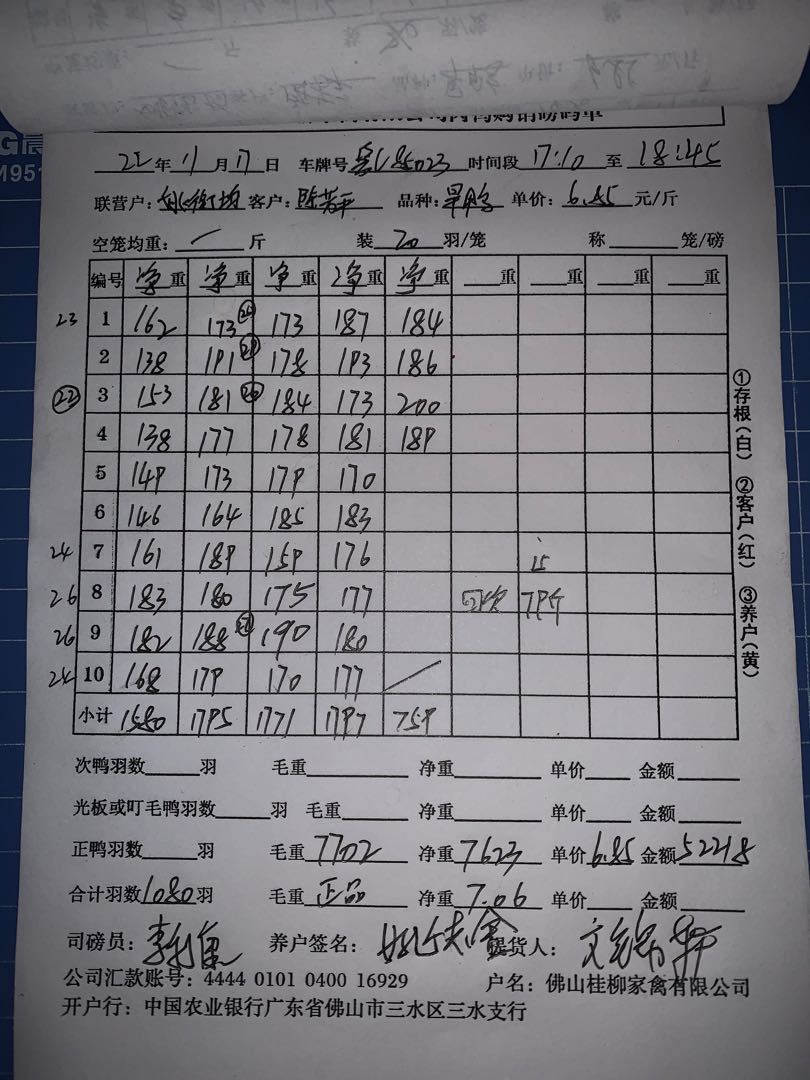 22 年 11 月 17 日 车牌号 时间段 17:10 至 18:45
联营户: 客户: 陈芳平 品种: 单价: 6.85 元/斤
空笼均重: / 斤 装 20 羽/笼 称 笼/磅
编号 净重 净重 净重 净重 净重 重 重 重 重
23 1 162 173 173 187 184
2 138 191 178 193 186
22 3 153 181 184 173 200
4 138 177 178 181 189
5 149 173 179 170
6 146 164 185 183
24 7 161 189 159 176 15
26 8 183 180 175 177 79斤
26 9 182 188 190 180
24 10 168 179 170 177 /
小计 1580 1795 1771 1797 759
次鸭羽数 羽 毛重 净重 单价 金额
光板或叮毛鸭羽数 羽 毛重 净重 单价 金额
正鸭羽数 羽 毛重 7702 净重 7623 单价 6.85 金额 52218
合计羽数 1080 羽 毛重 正品 净重 7.06 单价 金额
司磅员: 养户签名: 提货人:
公司汇款账号: 4444 0101 0400 16929 户名: 佛山桂柳家禽有限公司
开户行: 中国农业银行广东省佛山市三水区三水支行
①存根(白) ②客户(红) ③养户(黄)
M951